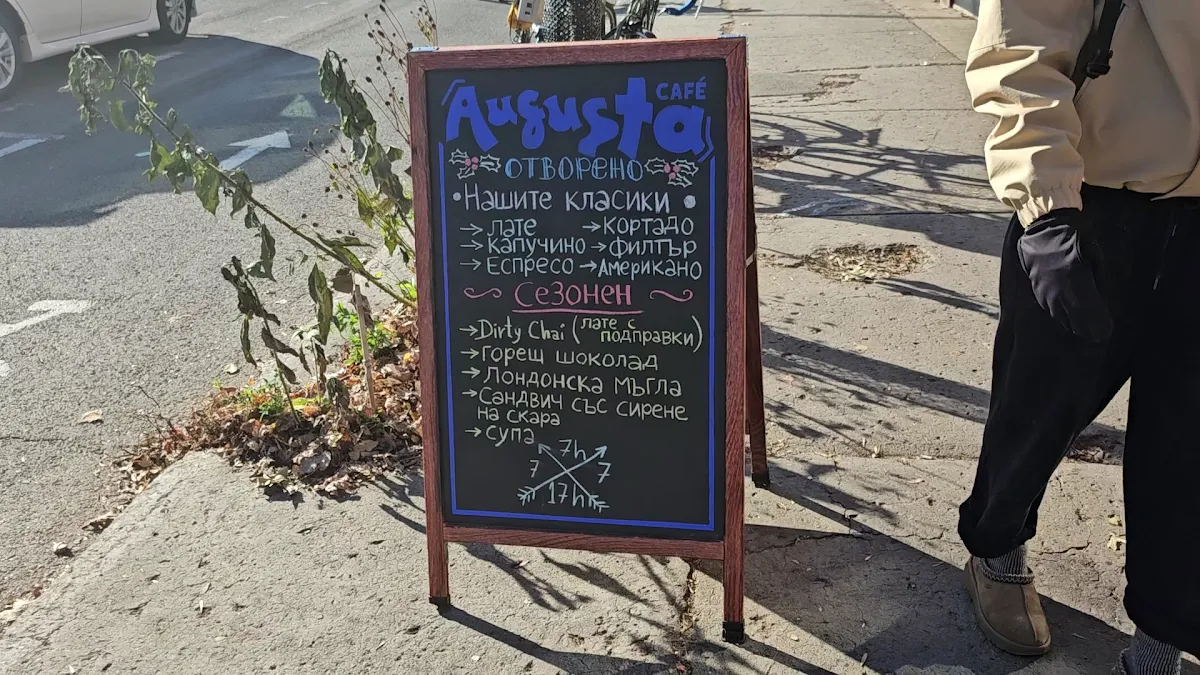 Augusta CAFÉ
ОТВОРЕНО
• Нашите класики •
→ лате → кортадо
→ капучино → филтър
→ Еспресо → Американо
Сезонен
→ Dirty Chai (лате с подправки)
→ горещ шоколад
→ Лондонска мъгла
→ Сандвич със сирене
на скара
→ супа
7h
7 7
17h